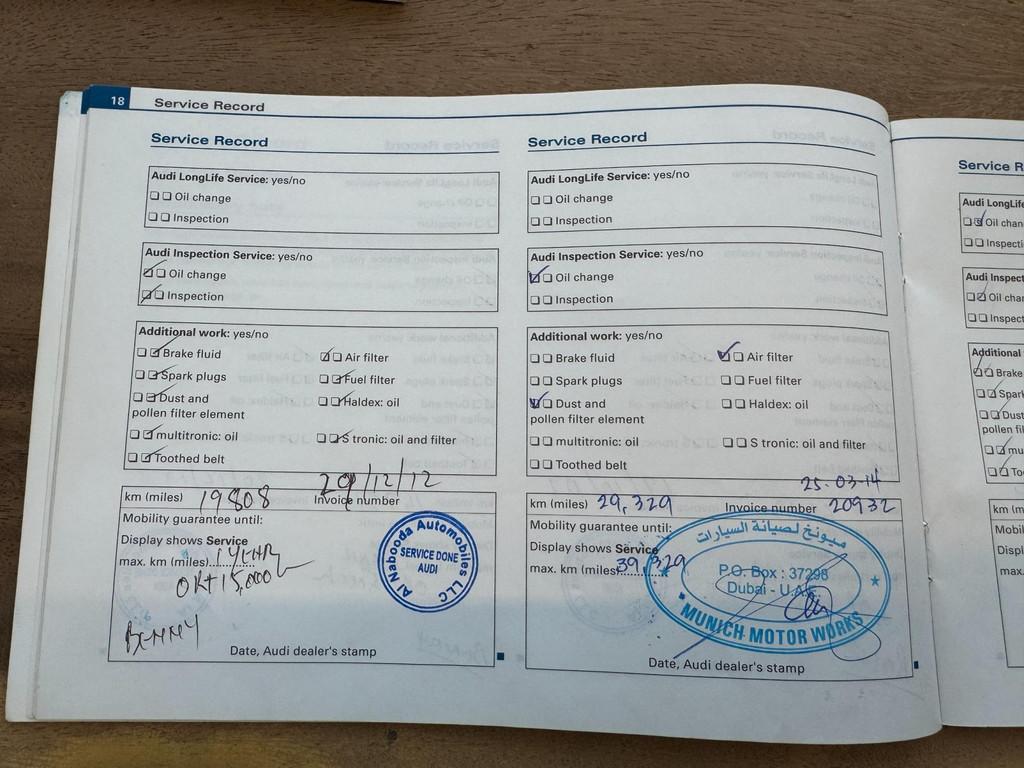 18 Service Record
Service Record
Audi LongLife Service: yes/no
Oil change
Inspection
Audi Inspection Service: yes/no
Oil change
Inspection
Additional work: yes/no
Brake fluid
Air filter
Spark plugs
Fuel filter
Dust and
pollen filter element
Haldex: oil
multitronic: oil
S tronic: oil and filter
Toothed belt
29/12/12
km (miles) 19808
Invoice number
Mobility guarantee until:
Display shows Service
1 YEAR
max. km (miles)
OR + 15,000
BENNY
Al Nabooda Automobiles LLC
SERVICE DONE
AUDI
Date, Audi dealer's stamp
Service Record
Audi LongLife Service: yes/no
Oil change
Inspection
Audi Inspection Service: yes/no
Oil change
Inspection
Additional work: yes/no
Brake fluid
Air filter
Spark plugs
Fuel filter
Dust and
pollen filter element
Haldex: oil
multitronic: oil
S tronic: oil and filter
Toothed belt
25-03-14
km (miles) 29,329
Invoice number 20932
Mobility guarantee until:
Display shows Service
max. km (miles) 39,329
ميونخ لصيانة السيارات
P.O. Box : 37298
Dubai - U.A.E.
MUNICH MOTOR WORKS
Date, Audi dealer's stamp
Service R
Audi LongLife
Oil chan
Inspecti
Audi Inspect
Oil char
Inspect
Additional
Brake
Spar
Dust
pollen fil
mu
To
km (m
Mobi
Displ
max.